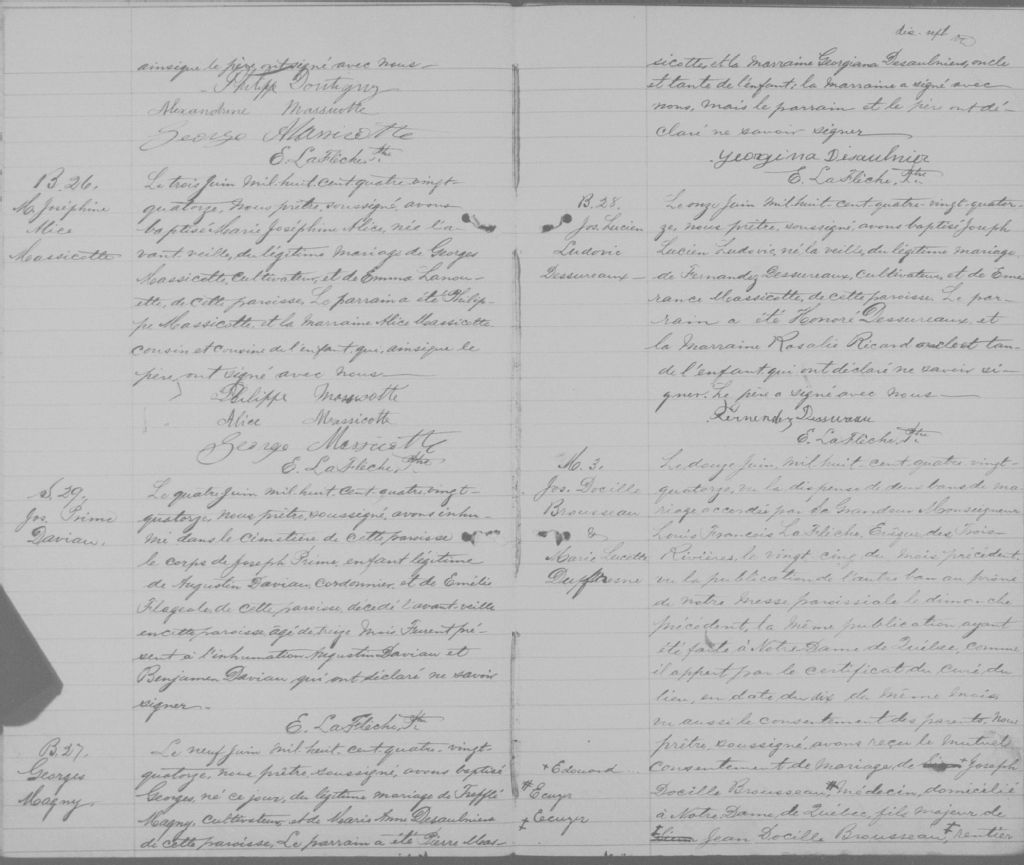 ainsi que le père, ont signé avec nous—
Philippe Dontigny
Alexandrine Massicotte
George Massicotte
E. LaFlèche, Ptre
B. 26.
M. Joséphine
Alice
Massicotte
Le trois Juin mil. huit cent quatre-vingt-
quatorze, Nous prêtre, soussigné, avons
baptisé Marie Joséphine Alice, née l'a-
vant veille, du légitime mariage de Georges
Massicotte, Cultivateur, et de Emma Lanou-
ette, de cette paroisse. Le parrain a été Philip-
pe Massicotte, et la marraine Alice Massicotte
cousin et cousine de l'enfant, qui, ainsi que le
père, ont signé avec nous—
Philippe Massicotte
Alice Massicotte
George Massicotte
E. LaFlèche, Ptre
S. 29.
Jos. Prime
Daviau.
Le quatre Juin mil. huit. cent. quatre-vingt-
quatorze, nous prêtre, soussigné, avons inhu-
mé dans le Cimetière de cette paroisse
le corps de Joseph Prime, enfant légitime
de Augustin Daviau, Cordonnier, et de Emélie
Flageole, de cette paroisse, décédé l'avant-veille
en cette paroisse âgé de treize mois. Furent pré-
sent à l'inhumation Augustin Daviau et
Benjamen Daviau qui ont déclaré ne savoir
signer.—
E. LaFlèche, Ptre
B. 27.
Georges
Magny
Le neuf Juin mil huit, cent quatre-vingt-
quatorze, nous prêtre, soussigné, avons baptisé
Georges, né ce jour, du légitime mariage de Trefflé
Magny, Cultivateur et de Marie Anne Desaulniers
de cette paroisse. Le parrain a été Pierre Mas-
dix-sept
sicotte, et la marraine Georgiana Desaulniers, oncle
et tante de l'enfant; la marraine a signé avec
nous, mais le parrain et le père ont dé-
claré ne savoir signer
Georgina Désaulnier
E. LaFlèche, Ptre
B. 28.
Jos. Lucien
Ludovic
Dessureaux—
Le onze Juin mil. huit cent. quatre-vingt-quator-
ze, nous prêtre, soussigné, avons baptisé Joseph
Lucien Ludovic, né la veille, du légitime mariage,
de Fernandez Dessureaux, Cultivateur, et de Emé-
rance Massicotte, de cette paroisse. Le par-
rain a été Honoré Dessureaux, et
la Marraine Rosalie Ricard oncle et tan-
de l'enfant qui ont déclaré ne savoir si-
gner. Le père a signé avec nous—
Fernendez Dessureau
E. LaFlèche, Ptre
M. 3.
Jos. Docille
Brousseau
&
Marie Lucette
Dufresne
Le douze Juin, mil. huit. cent quatre-vingt-
quatorze, vu la dispense de deux bans de ma-
riage accordée par Sa Grandeur Monseigneur
Louis François LaFlèche, Evêque des Trois-
Rivières, le vingt cinq du mois précédent
vu la publication de l'autre ban au prône
de notre messe paroissiale le dimanche
précédent, la même publication ayant
été faite à Notre Dame de Québec, comme
il appert par le certificat du Curé du
lieu, en date du dix du même mois,
vu aussi le consentement des parents, Nous
prêtre, soussigné, avons reçu le mutuel
consentement de mariage, de + Joseph
Docille Brousseau # Médecin, domicilié
à Notre Dame, de Québec, fils majeur de
Jean Docille Brousseau ‡, rentier
+ Edouard
# Ecuyr
‡ Ecuyer